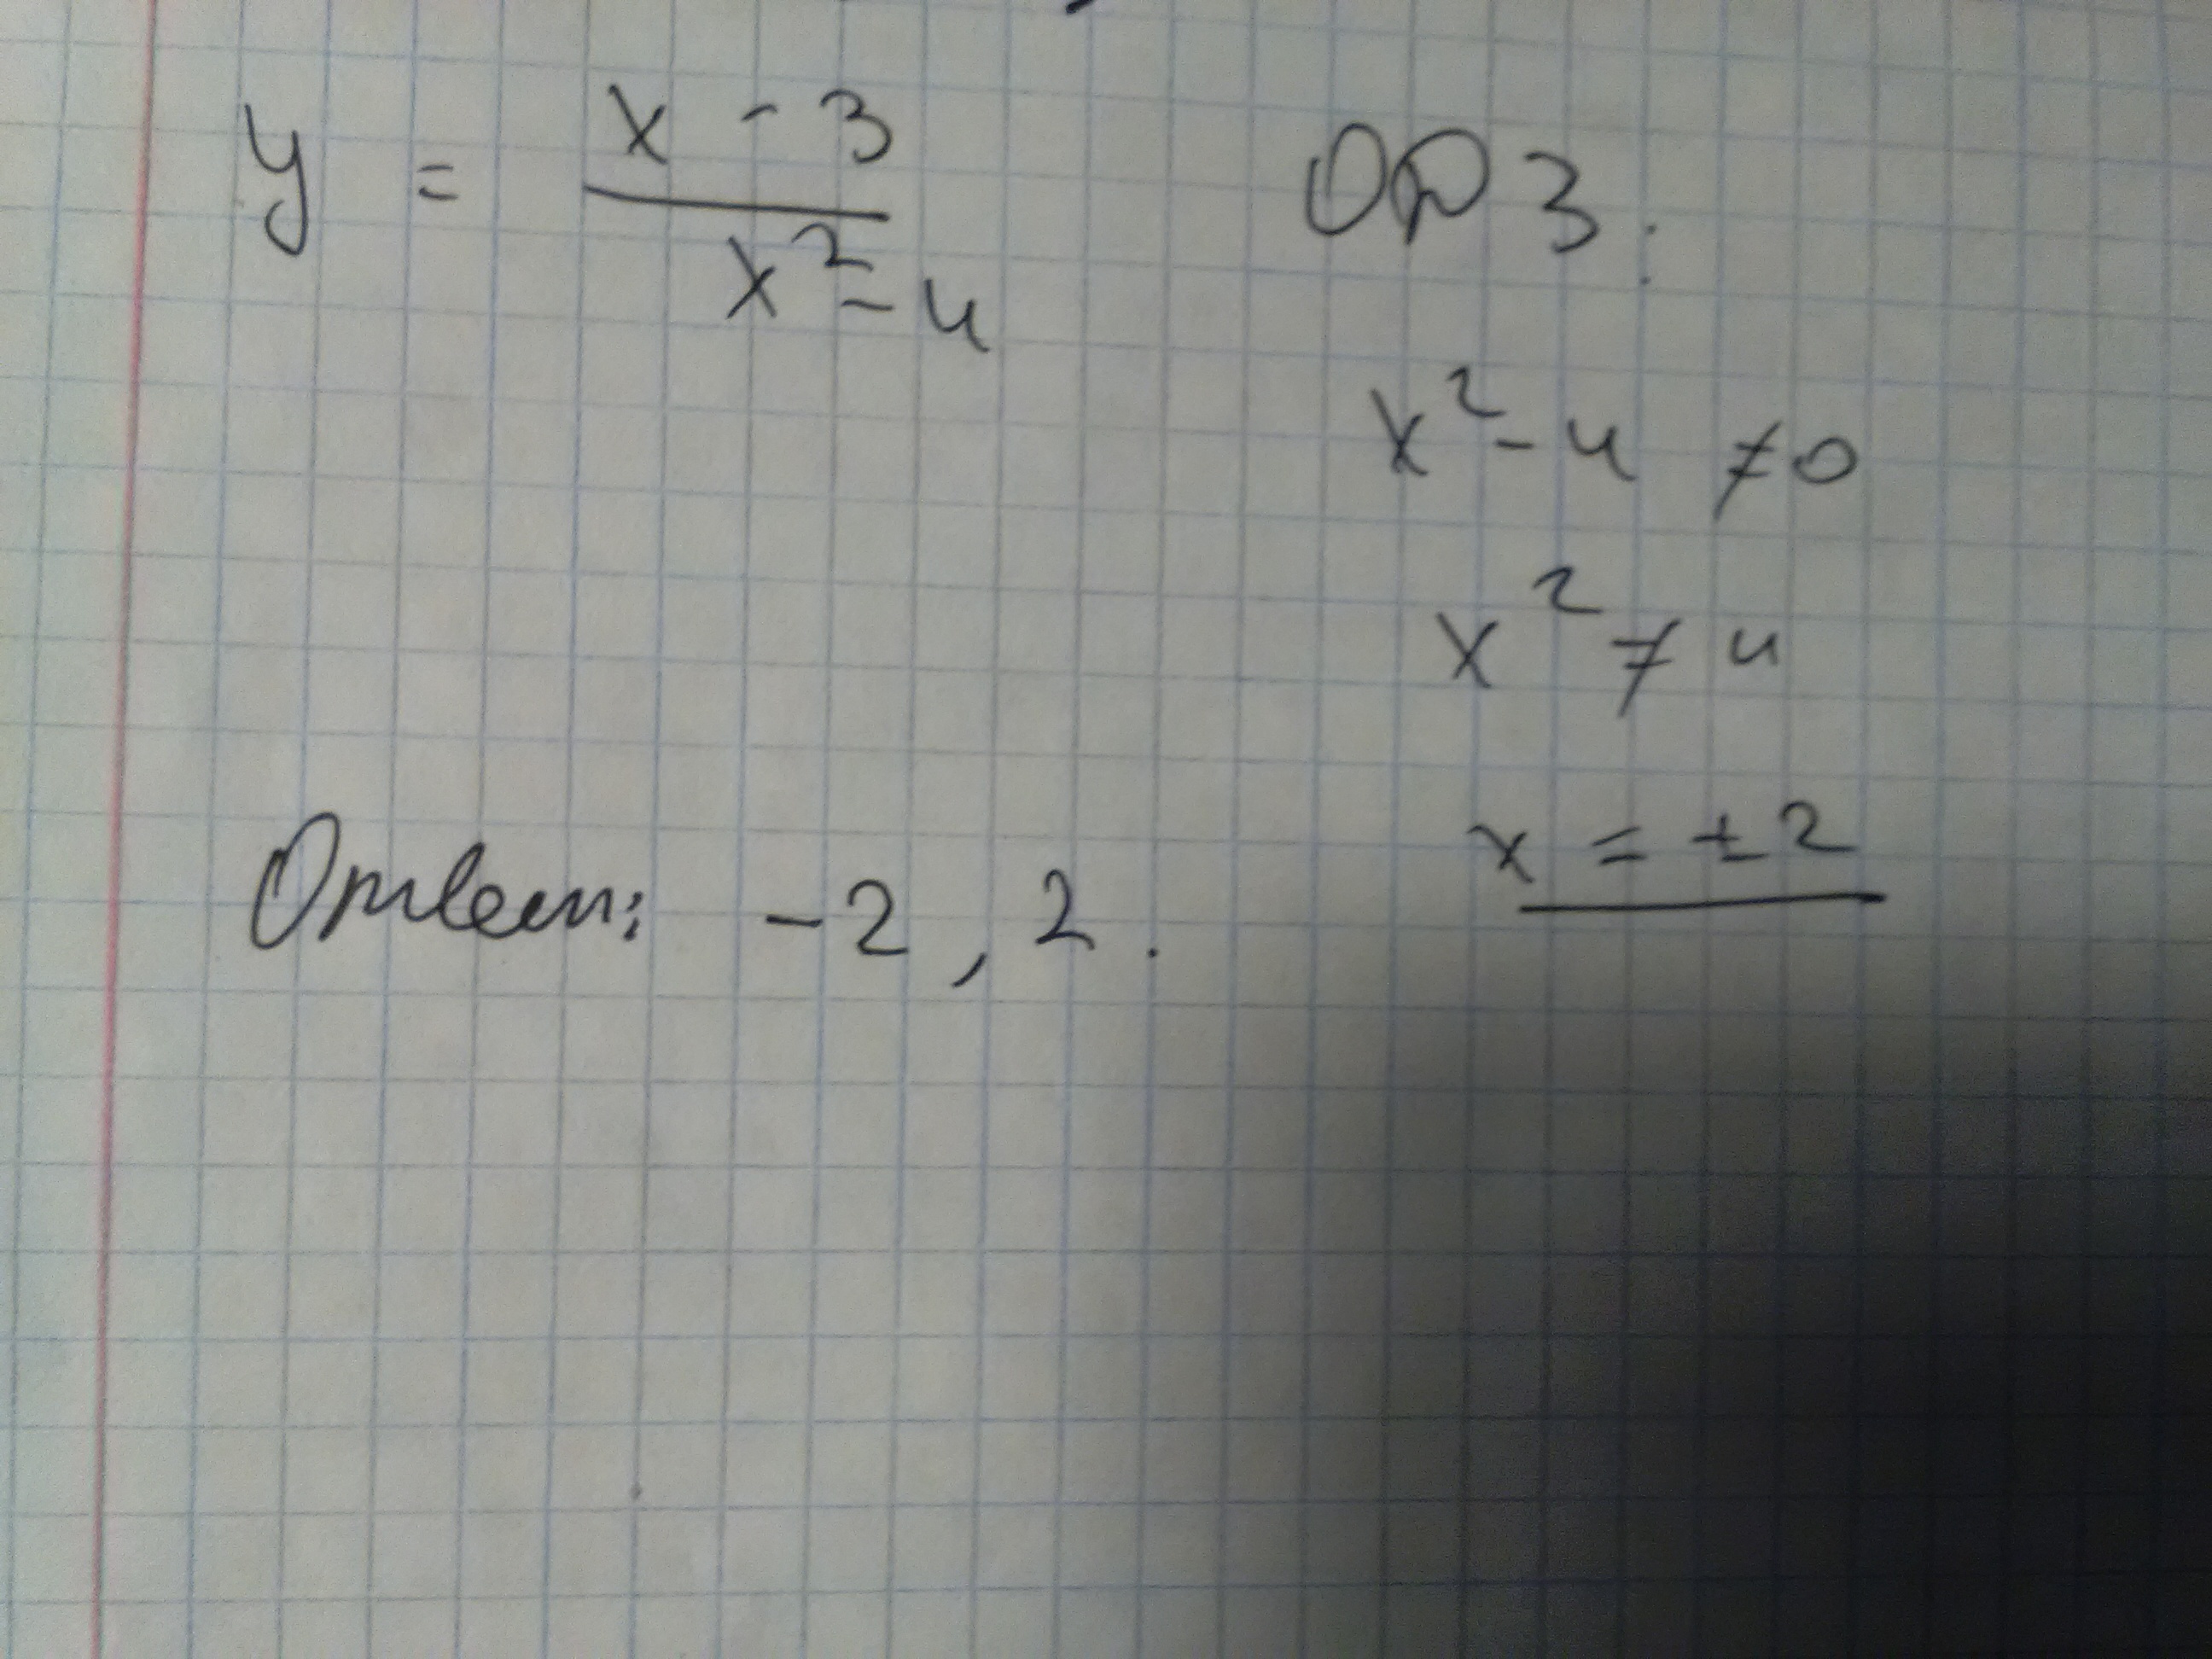 y = x - 3 / x² - 4
ОДЗ:
x² - 4 ≠ 0
x² ≠ 4
x = ±2
Ответ: -2, 2.